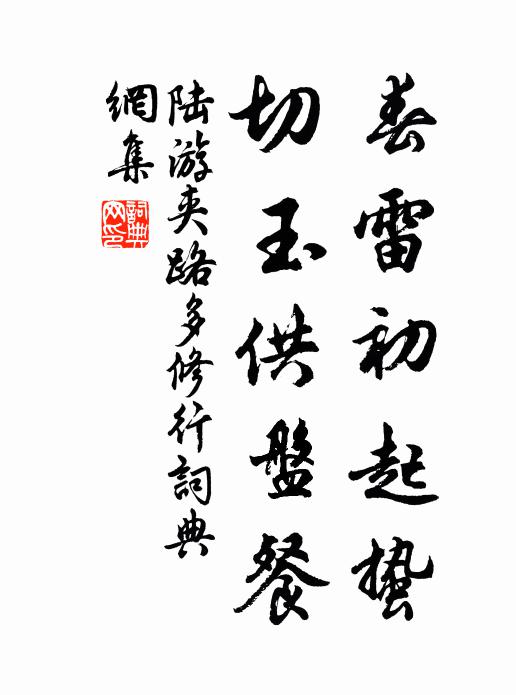 春雷初起蟄
切玉供盤餐
陸游夾路多修行詞典
網集
詞典網印